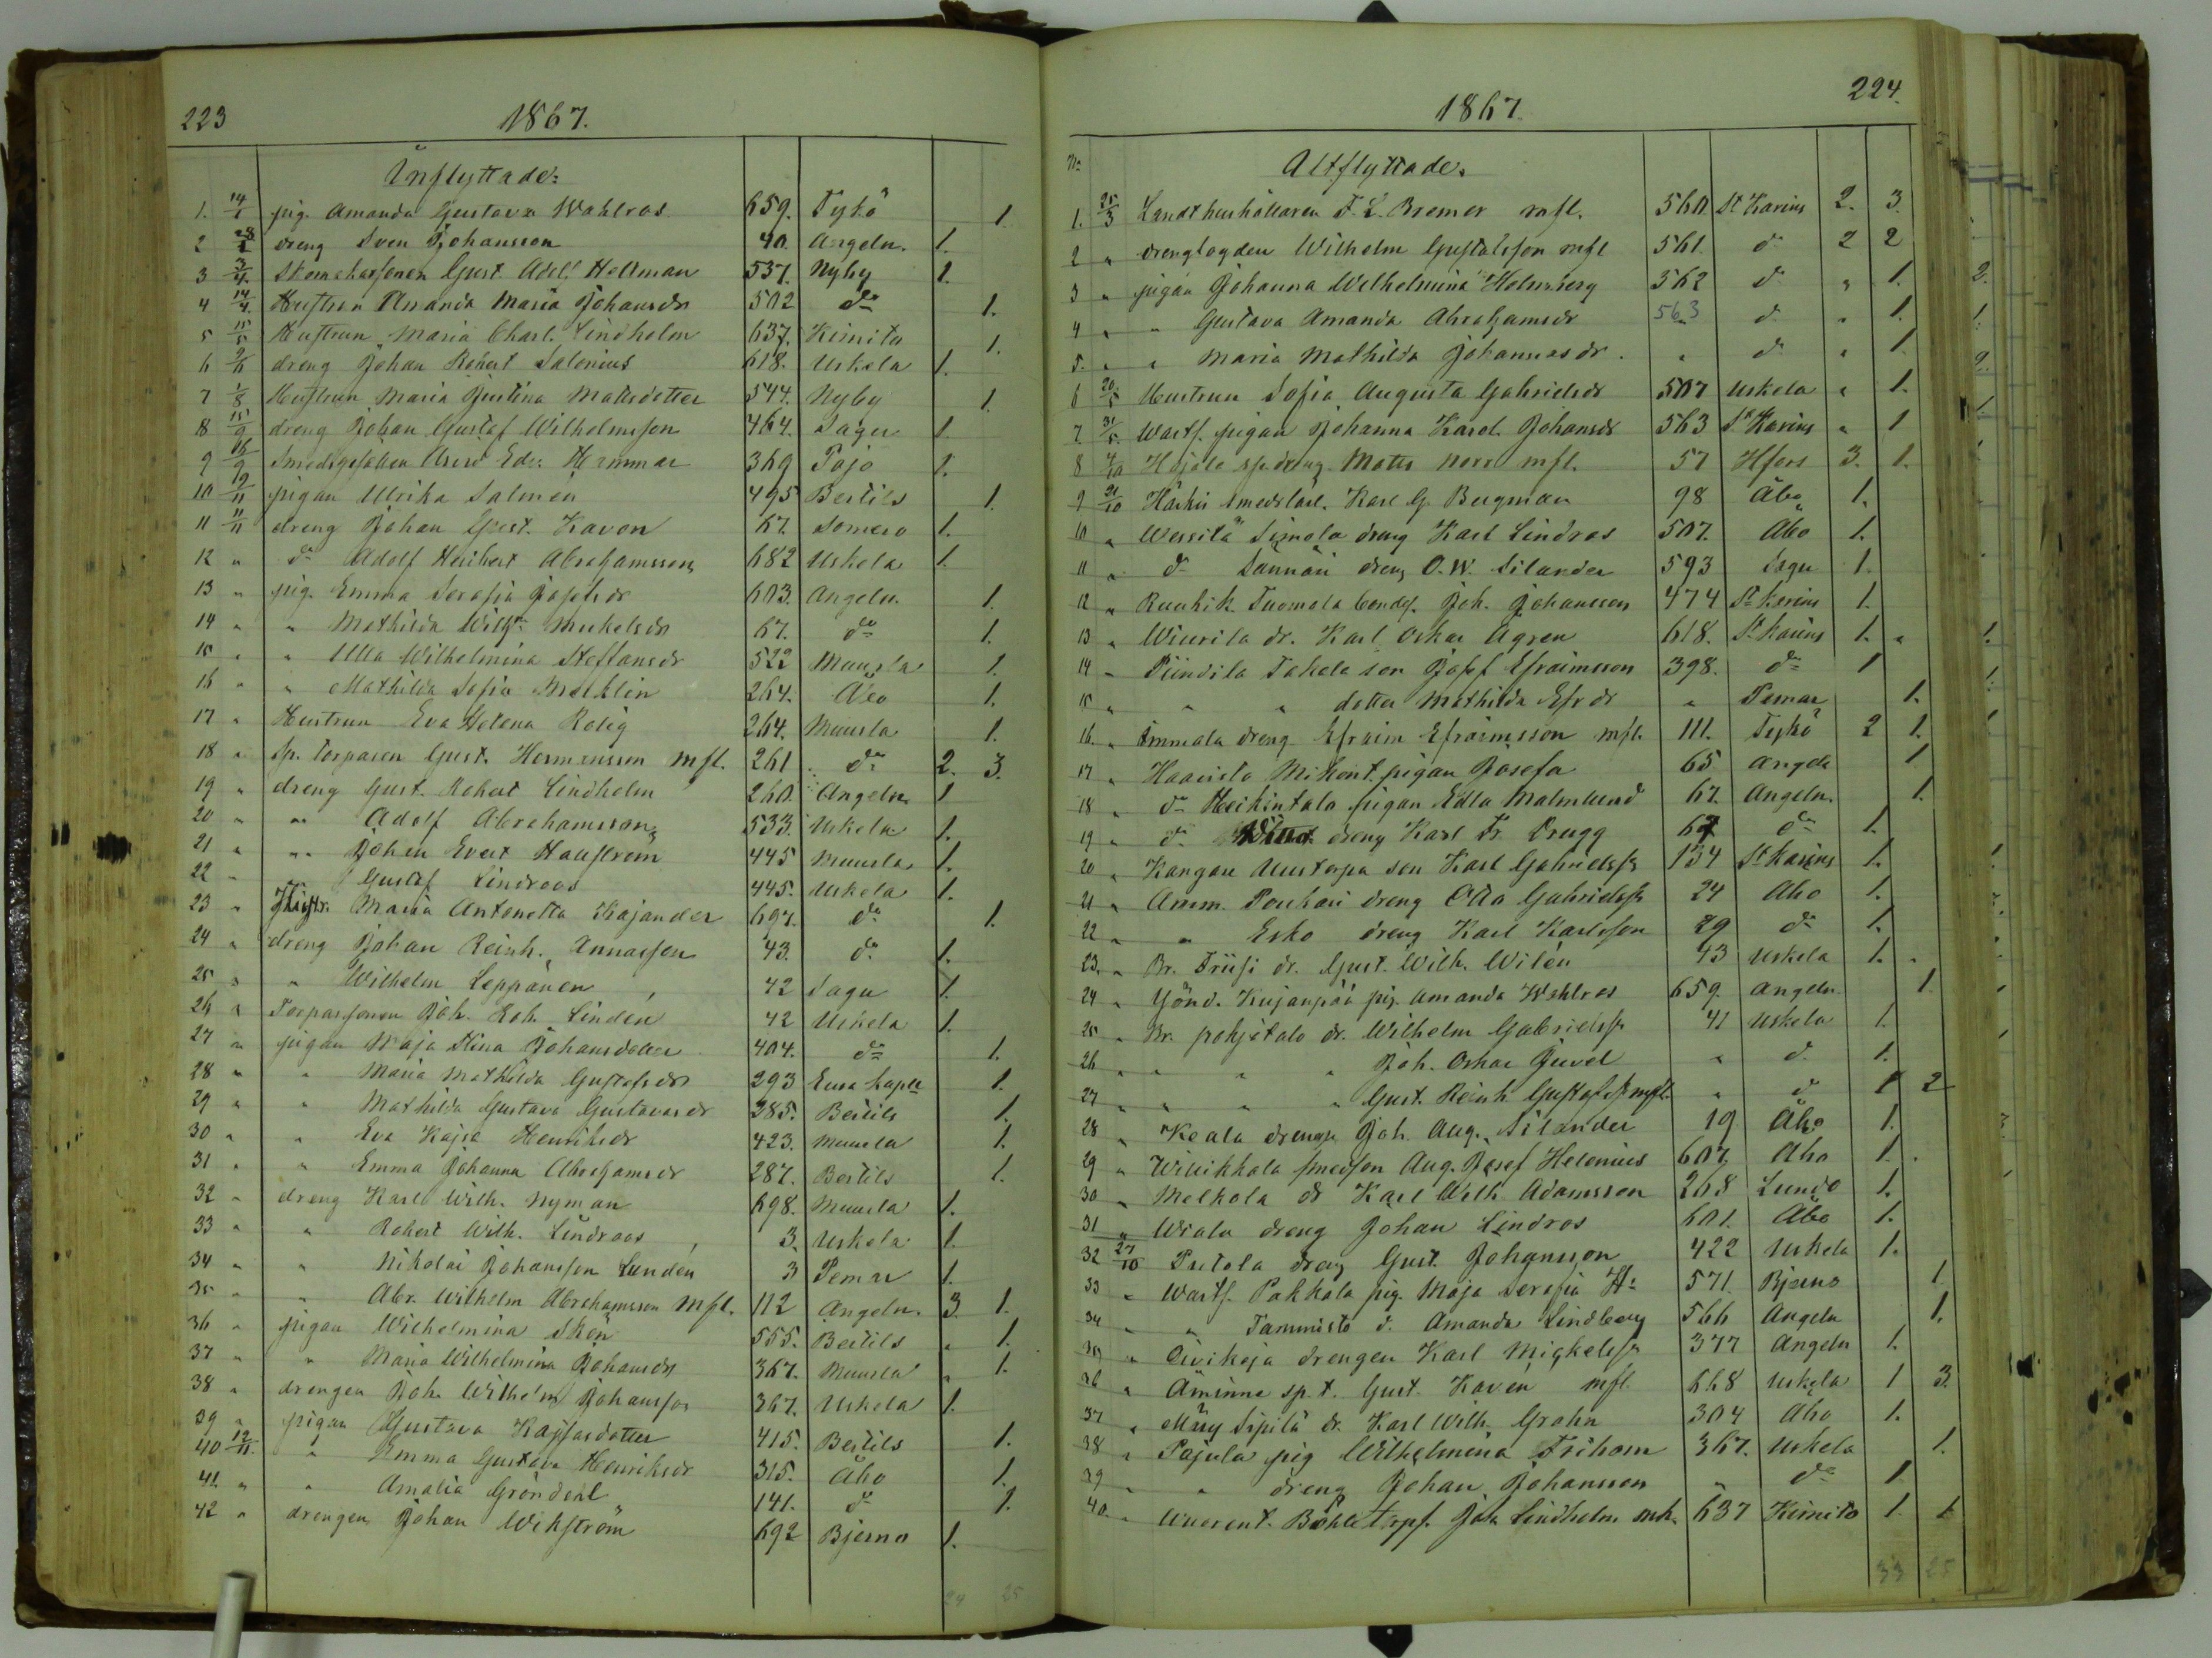 223 1867.
Inflyttade:
1. 14/1 pig. Amanda Gustava Wahlros 659. Tykö 1.
2 28/2 dreng Sven Johansson 40. Angeln. 1.
3 3/4. Gust. Adolf Hellman 537. Nyby 1.
4 14/4. Hustrun Amanda Maria Johansdr 502 do 1.
5 15/5 Hustrun Maria Charl. Lindholm 637. Kimito 1.
6 9/6 dreng Johan Robert Salonius 618. Uskela 1.
7 1/8 Hustrun Maria Justina Matsdotter 544. Nyby 1.
8 15/9 dreng Johan Gustaf Wilhelmsson 464. Sagu 1.
9 16/9 Smedsgesällen Edv. Hammar 369 Pojo 1.
10 19/11 pigan Ulrika Salmén 495 Bertils 1.
11 11/11 dreng Johan Gust. Kavon 67. Somero 1.
12 " do Adolf Heribert Abrahamsson 682 Uskela 1.
13 " pig. Emma Serafia Josefsdr 603. Angeln. 1.
14 " " Mathilda Wilhna Mickelsdr 67. do 1.
15 " " Ulla Wilhelmina Steffansdr 522 Muurla 1.
16 " " Mathilda Sofia Macklin 264. Åbo 1.
17 " Hustrun Eva Helena Rolig 264. Muurla 1.
18 " Sp. torparen Gust. Hermansson mfl. 261 do 2. 3.
19 " dreng Gust. Robert Lindholm 260. Angeln. 1
20 " " Adolf Abrahamsson 533. Uskela 1.
21 " " Johan Evert Hallström 445 Muurla 1.
22 " " Gustaf Lindroos 445. Uskela 1.
23 " Hustr. Maria Antonetta Kajander 697. do 1.
24 " dreng Johan Reinh. Annasson 43. do 1.
25 " " Wilhelm Leppänen 42 Sagu 1.
26 " Torparsonen Joh. Erh. Lindén 42 Uskela 1.
27 " pigan Maja Stina Johansdotter 404. do 1.
28 " " Maria Mathilda Gustafsdr 293 Eura kapell 1.
29 " " Mathilda Gustava Gustavasdr 285. Bertils 1.
30 " " Eva Kajsa Henriksdr 423. Muurla 1.
31 " " Emma Johanna Abrahamsdr 287. Bertils 1.
32 " dreng Karl Wilh. Nyman 698. Muurla 1.
33 " " Robert Wilh. Lindroos 3. Uskela 1.
34 " " Nikolai Johansson Lundén 3 Pemar 1.
35 " " Abr. Wilhelm Abrahamsson mfl. 112 Angeln. 3. 1.
36 " pigan Wilhelmina Skön 555. Bertils " 1.
37 " " Maria Wilhelmina Johansdr 367. Muurla " 1.
38 " drengen Joh. Wilhelm Johansson 367. Uskela 1.
39 " pigan Gustava Kajsasdotter 415. Bertils 1.
40 12/11. " Emma Gustava Henriksdr 315. Åbo 1.
41. " " Amalia Gröndahl 141. do 1.
42 " drengen Johan Wikström 692 Bjerno 1.
24 25
1867. 224.
No Utflyttade.
1. 25/3 Landthushållaren F. L. Bremer mfl. 560 St Karins 2. 3.
2 " drengfogden Wilhelm Gustafsson mfl 561. do 2 2
3 " pigan Johanna Wilhelmina Holmberg 562 do " 1.
4 " " Gustava Amanda Abrahamsdr 563 do " 1.
5. " " Maria Mathilda Johannesdr. " do " 1
6 20/5 Hustrun Sofia Augusta Gabrielsdr 507 Uskela " 1.
7 31/5. Wartf. pigan Johanna Karol. Johansdr 563 St Karins " 1
8 4/10 sp. dreng Matts Norr mfl. 57 Hfors 3. 1.
9 21/10 Härkis smedslärl. Karl G. Bergman 98 Åbo 1.
10 " Simola dreng Karl Lindros 507. Åbo 1.
11 " do Sännäri dreng O. W. Silander 593 Sagu 1.
12 " Ruuhik. Tuomola Joh. Johansson 474 St Karins 1.
13 " Wiurila dr. Karl Oskar Ågren 618. St Karins 1. "
14 " Piindila Takala son Josef Efraimsson 398. do 1
15 " " " dotter Mathilda Efrdr " Pemar 1.
16. " Immala dreng Efraim Efraimsson mfl. 111. Tykö 2 1.
17 " Haavisto Mikont. pigan Josefa 65 Angeln 1
18 " do Heikintalo pigan Edla Malmlund 67. Angeln. 1.
19 " do dreng Karl Fr. Brugg 67 do 1.
20 " Kangare Uustorpa son Karl Gabrielss. 134 St Karins 1.
21 " Amm. Poukari dreng Otto Gabrielss. 24 Åbo 1.
22 " " Esko dreng Karl Karlsson 29 do 1.
23. " Br. Friisi dr. Gust. Wilh. Wilén 43 Uskela 1.
24 " Yönd. Kujanpää pig. Amanda Wahlros 659. Angeln 1.
25 " Br. Pohjatalo dr. Wilhelm Gabrielss. 41 Uskela 1.
26 " " " " Joh. Oskar Juvel " do 1.
27 " " " " Gust. Reinh. Gustafss. mfl. " do 1 2
28 " Keala dreng Joh. Aug. Silander 19 Åbo 1.
29 " Willikkala smedson Aug. Josef Helenius 607. Åbo 1.
30 " Melkola dr Karl Wilh. Adamsson 268 Lundo 1.
31 " Wiala dreng Johan Lindros 601. Åbo 1.
32 27/10 Putola dreng Gust. Johansson 422 Uskela 1.
33 " Wartf. Pakkala pig. Maja Serafia 571. Bjerno 1.
34 " " Tammisto d. Amanda Lindberg 566 Angeln 1.
35 " drengen Karl Mickelss. 377 Angeln 1.
36 " Åminne sp. t. Gust. Kaven mfl. 668 Uskela 1 3.
37 " Märy Sipilä dr. Karl Wilh. Grahn 304 Åbo 1.
38 " Pajula pig Wilhelmina Frihom 367. Uskela 1.
39 " " dreng Johan Johansson " do 1
40. " Böhle torpf. Joh. Lindholm mh. 637 Kimito 1. 1
33 25